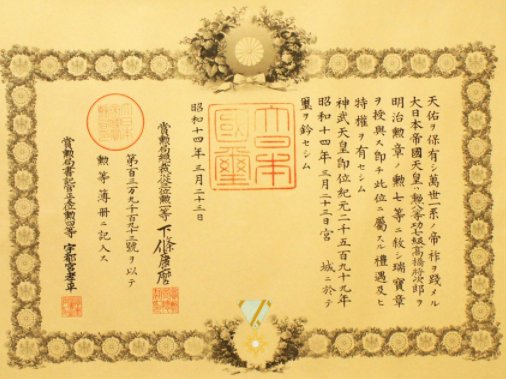 天佑ヲ保有シ萬世一系ノ帝祚ヲ踐メル
大日本帝國天皇ハ勲八等功七級髙橋将次郎ヲ
明治勲章ノ勲七等ニ敘シ瑞寳章
ヲ授與ス即チ此位ニ屬スル禮遇及ヒ
特權ヲ有セシム
神武天皇即位紀元二千五百九十九年
昭和十四年三月二十三日宮城ニ於テ
璽ヲ鈐セシム
大日本國璽
昭和十四年三月二十三日
賞勲局總裁従三位勲一等下條康麿
第百三万九千百九十三號ヲ以テ
勲等簿冊ニ記入ス
賞勲局書記官正五位勲四等宇都宮孝平